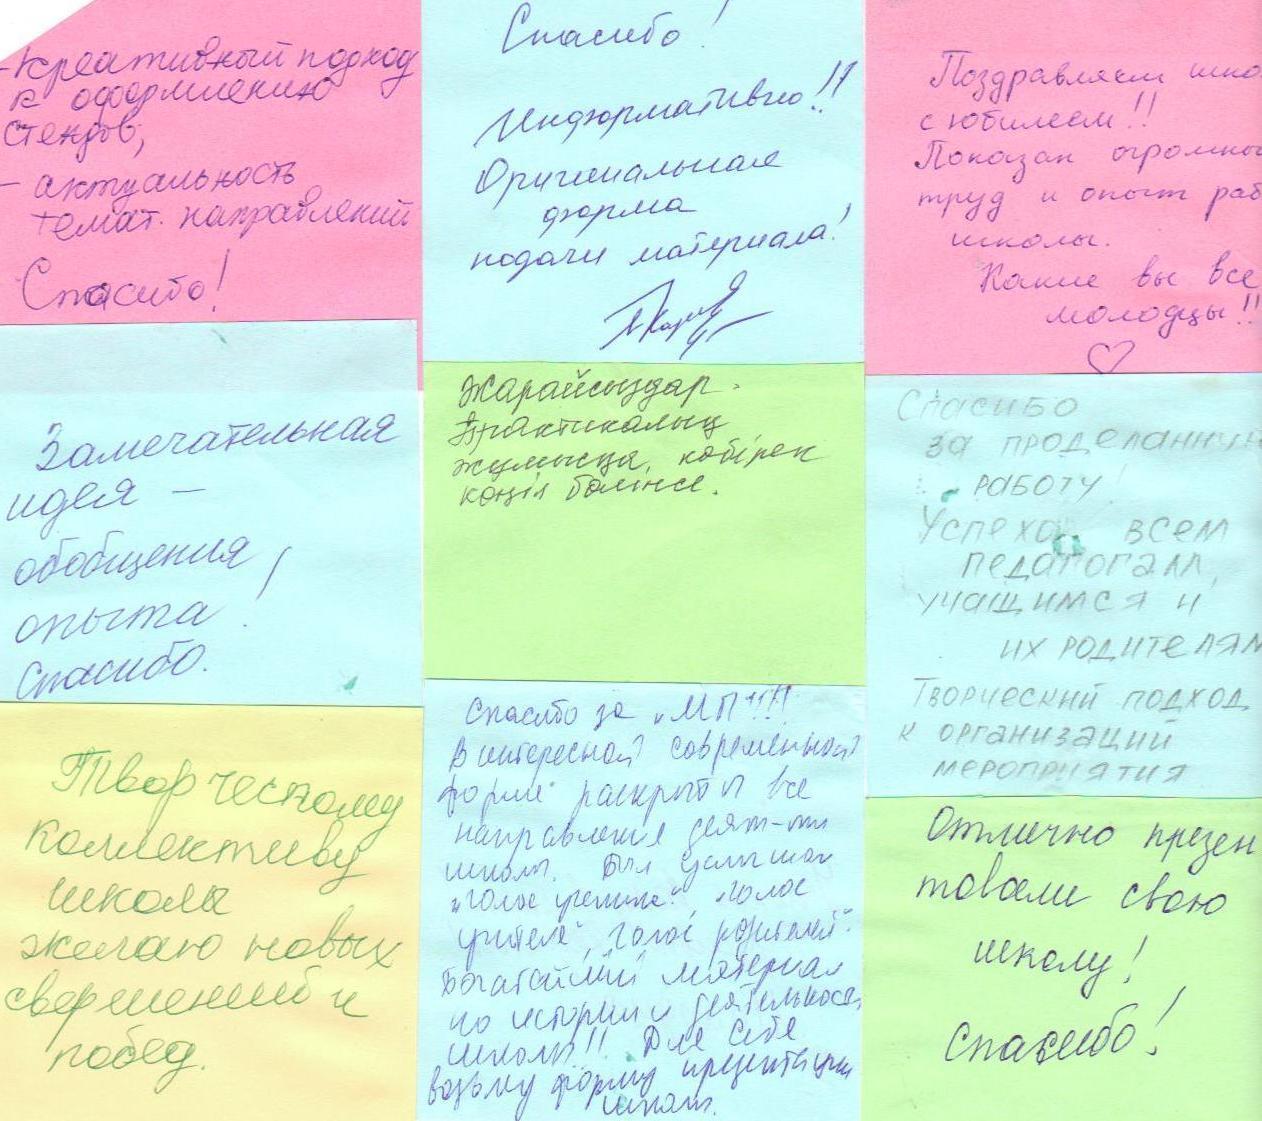 - Креативный подход
к оформлению
стендов;
- актуальность
темат. направлений
Спасибо!
Спасибо!
Информативно!!
Оригинальная
форма
подачи материала!
Поздравляем шко
с юбилеем!!
Показан огромны
труд и опыт раб
школы.
Какие вы все
молодцы!!
Замечательная
идея —
обобщения
опыта!
Спасибо.
Жарайсыздар.
Практикалық
жұмысқа, көбірек
көңіл бөлінсе.
Спасибо
за проделанную
работу!
Успехов всем
педагогам,
учащимся и
их родителям
Творческий подход
к организации
мероприятия
Творческому
коллективу
школы
желаю новых
свершений и
побед.
Спасибо за „МП"!!!
В интересной современной
форме раскрыты все
направления деят-ти
школы. Был услышан
„голос ученика" „голос
учителя", „голос родителей".
Богатейший материал
по истории и деятельности
школы!! Для себя
возьму форму презентации
школы.
Отлично презен
товали свою
школу!
Спасибо!